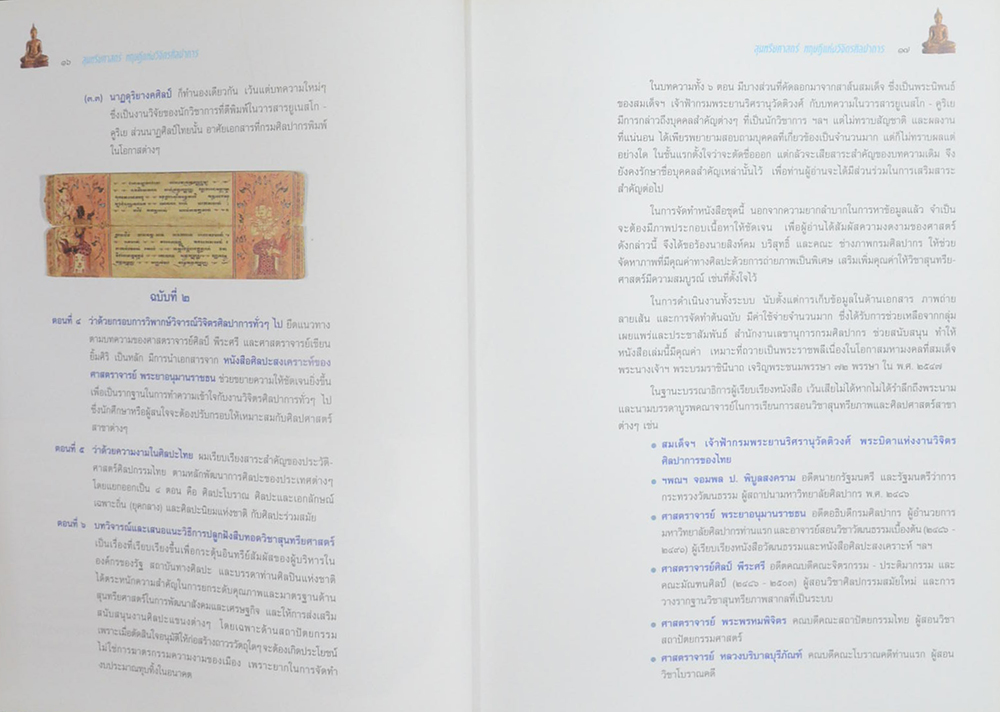 ๑๖ สุนทรียศาสตร์ ทฤษฎีแห่งวิจิตรศิลปาการ
(๓.๓) นาฏดุริยางคศิลป์ ก็ทำนองเดียวกัน เว้นแต่บทความใหม่ๆ
ซึ่งเป็นงานวิจัยของนักวิชาการที่ตีพิมพ์ในวารสารยูเนสโก -
คูริเย ส่วนนาฏศิลป์ไทยนั้น อาศัยเอกสารที่กรมศิลปากรพิมพ์
ในโอกาสต่างๆ
ฉบับที่ ๒
ตอนที่ ๔ ว่าด้วยกรอบการวิพากษ์วิจารณ์วิจิตรศิลปาการทั่วๆ ไป ยึดแนวทาง
ตามบทความของศาสตราจารย์ศิลป์ พีระศรี และศาสตราจารย์เขียน
ยิ้มศิริ เป็นหลัก มีการนำเอกสารจาก หนังสือศิลปะสงเคราะห์ของ
ศาสตราจารย์ พระยาอนุมานราชธน ช่วยขยายความให้ชัดเจนยิ่งขึ้น
เพื่อเป็นรากฐานในการทำความเข้าใจกับงานวิจิตรศิลปาการทั่วๆ ไป
ซึ่งนักศึกษาหรือผู้สนใจจะต้องปรับกรอบให้เหมาะสมกับศิลปศาสตร์
สาขาต่างๆ
ตอนที่ ๕ ว่าด้วยความงามในศิลปะไทย ผมเรียบเรียงสาระสำคัญของประวัติ-
ศาสตร์ศิลปกรรมไทย ตามหลักพัฒนาการศิลปะของประเทศต่างๆ
โดยแยกออกเป็น ๔ ตอน คือ ศิลปะโบราณ ศิลปะและเอกลักษณ์
เฉพาะถิ่น (ยุคกลาง) และศิลปะนิยมแห่งชาติ กับศิลปะร่วมสมัย
ตอนที่ ๖ บทวิจารณ์และเสนอแนะวิธีการปลูกฝังสืบทอดวิชาสุนทรียศาสตร์
เป็นเรื่องที่เรียบเรียงขึ้นเพื่อกระตุ้นอินทรีย์สัมผัสของผู้บริหารใน
องค์กรของรัฐ สถาบันทางศิลปะ และบรรดาท่านศิลปินแห่งชาติ
ได้ตระหนักความสำคัญในการยกระดับคุณภาพและมาตรฐานด้าน
สุนทรียศาสตร์ในการพัฒนาสังคมและเศรษฐกิจ และให้การส่งเสริม
สนับสนุนงานศิลปะแขนงต่างๆ โดยเฉพาะด้านสถาปัตยกรรม
เพราะเมื่อตัดสินใจอนุมัติให้ก่อสร้างถาวรวัตถุใดๆ จะต้องเกิดประโยชน์
ไม่ใช่การฆาตรกรรมความงามของเมือง เพราะยากในการจัดทำ
งบประมาณทุบทิ้งในอนาคต
สุนทรียศาสตร์ ทฤษฎีแห่งวิจิตรศิลปาการ ๑๗
ในบทความทั้ง ๖ ตอน มีบางส่วนที่คัดลอกมาจากสาส์นสมเด็จ ซึ่งเป็นพระนิพนธ์
ของสมเด็จฯ เจ้าฟ้ากรมพระยานริศรานุวัดติวงศ์ กับบทความในวารสารยูเนสโก - คูริเย
มีการกล่าวถึงบุคคลสำคัญต่างๆ ที่เป็นนักวิชาการ ฯลฯ แต่ไม่ทราบสัญชาติ และผลงาน
ที่แน่นอน ได้เพียรพยายามสอบถามบุคคลที่เกี่ยวข้องเป็นจำนวนมาก แต่ก็ไม่ทราบผลแต่
อย่างใด ในชั้นแรกตั้งใจว่าจะตัดชื่อออก แต่กลัวจะเสียสาระสำคัญของบทความเดิม จึง
ยังคงรักษาชื่อบุคคลสำคัญเหล่านั้นไว้ เพื่อท่านผู้อ่านจะได้มีส่วนร่วมในการเสริมสาระ
สำคัญต่อไป
ในการจัดทำหนังสือชุดนี้ นอกจากความยากลำบากในการหาข้อมูลแล้ว จำเป็น
จะต้องมีภาพประกอบเนื้อหาให้ชัดเจน เพื่อผู้อ่านได้สัมผัสความงดงามของศาสตร์
ดังกล่าวนี้ จึงได้ขอร้องนายสิงห์คม บริสุทธิ์ และคณะ ช่างภาพกรมศิลปากร ให้ช่วย
จัดหาภาพที่มีคุณค่าทางศิลปะด้วยการถ่ายภาพเป็นพิเศษ เสริมเพิ่มคุณค่าให้วิชาสุนทรีย-
ศาสตร์มีความสมบูรณ์ เช่นที่ตั้งใจไว้
ในการดำเนินงานทั้งระบบ นับตั้งแต่การเก็บข้อมูลในด้านเอกสาร ภาพถ่าย
ลายเส้น และการจัดทำต้นฉบับ มีค่าใช้จ่ายจำนวนมาก ซึ่งได้รับการช่วยเหลือจากกลุ่ม
เผยแพร่และประชาสัมพันธ์ สำนักงานเลขานุการกรมศิลปากร ช่วยสนับสนุน ทำให้
หนังสือเล่มนี้มีคุณค่า เหมาะที่ถวายเป็นพระราชพลีเนื่องในโอกาสมหามงคลที่สมเด็จ
พระนางเจ้าฯ พระบรมราชินีนาถ เจริญพระชนมพรรษา ๗๒ พรรษา ใน พ.ศ. ๒๕๔๗
ในฐานะบรรณาธิการผู้เรียบเรียงหนังสือ เว้นเสียไม่ได้หากไม่ได้รำลึกถึงพระนาม
และนามบรรดาบูรพคณาจารย์ในการเรียนการสอนวิชาสุนทรียภาพและศิลปศาสตร์สาขา
ต่างๆ เช่น
• สมเด็จฯ เจ้าฟ้ากรมพระยานริศรานุวัดติวงศ์ พระบิดาแห่งงานวิจิตร
ศิลปาการของไทย
• ฯพณฯ จอมพล ป. พิบูลสงคราม อดีตนายกรัฐมนตรี และรัฐมนตรีว่าการ
กระทรวงวัฒนธรรม ผู้สถาปนามหาวิทยาลัยศิลปากร พ.ศ. ๒๔๘๖
• ศาสตราจารย์ พระยาอนุมานราชธน อดีตอธิบดีกรมศิลปากร ผู้อำนวยการ
มหาวิทยาลัยศิลปากรท่านแรก และอาจารย์สอนวิชาวัฒนธรรมเบื้องต้น (๒๔๘๖ -
๒๔๙๑) ผู้เรียบเรียงหนังสือวัฒนธรรมและหนังสือศิลปะสงเคราะห์ ฯลฯ
• ศาสตราจารย์ศิลป์ พีระศรี อดีตคณบดีคณะจิตรกรรม - ประติมากรรม และ
คณะมัณฑนศิลป์ (๒๔๘๖ - ๒๕๐๓) ผู้สอนวิชาศิลปกรรมสมัยใหม่ และการ
วางรากฐานวิชาสุนทรียภาพสากลที่เป็นระบบ
• ศาสตราจารย์ พระพรหมพิจิตร คณบดีคณะสถาปัตยกรรมไทย ผู้สอนวิชา
สถาปัตยกรรมศาสตร์
• ศาสตราจารย์ หลวงบริบาลบุรีภัณฑ์ คณบดีคณะโบราณคดีท่านแรก ผู้สอน
วิชาโบราณคดี